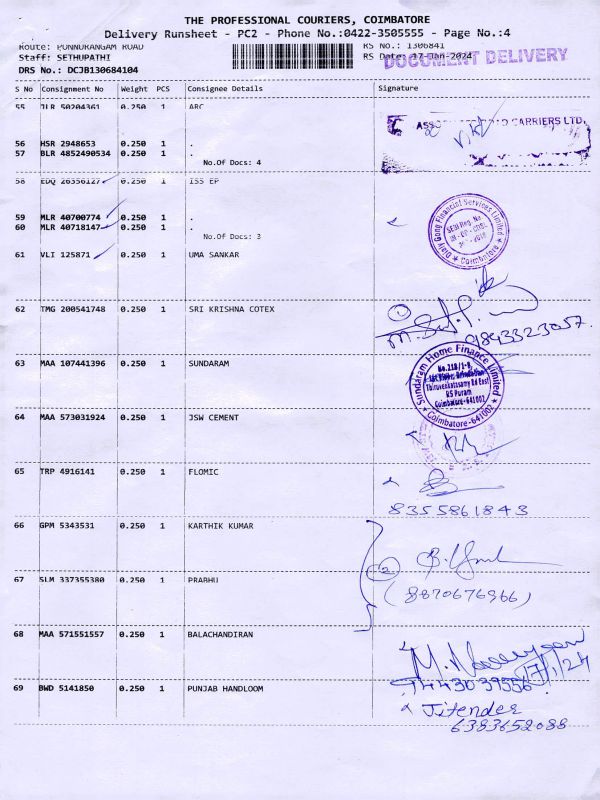 THE PROFESSIONAL COURIERS, COIMBATORE
Delivery Runsheet - PC2 - Phone No.:0422-3505555 - Page No.:4
Route: PONNURANGAM ROAD
RS No.: 1306841
Staff: SETHUPATHI
RS Date: 17-Jan-2024
DOCUMENT DELIVERY
DRS No.: DCJB130684104
S No Consignment No Weight PCS Consignee Details Signature
55 JLR 50204361 0.250 1 ABC
CARRIERS LTD.
56 HSR 2948653 0.250 1 .
57 BLR 4852490534 0.250 1 .
No.Of Docs: 4
58 EDQ 26356127 0.250 1 ISS EP
59 MLR 40700774 0.250 1 .
60 MLR 40718147 0.250 1 .
No.Of Docs: 3
Financial Services Limited
SEBI Reg. No.
Coimbatore
61 VLI 125871 0.250 1 UMA SANKAR
62 TMG 200541748 0.250 1 SRI KRISHNA COTEX
1
9843323057.
63 MAA 107441396 0.250 1 SUNDARAM
Sundaram Home Finance Limited
No.218/1-8,
Thiruvenkatasamy Rd East
RS Puram
Coimbatore-641002
Coimbatore-641002
64 MAA 573031924 0.250 1 JSW CEMENT
65 TRP 4916141 0.250 1 FLOMIC
8355861843
66 GPM 5343531 0.250 1 KARTHIK KUMAR
2
67 SLM 337355380 0.250 1 PRABHU
(8870676966)
68 MAA 571551557 0.250 1 BALACHANDIRAN
17/1/24
9443039556
69 BWD 5141850 0.250 1 PUNJAB HANDLOOM
Jitender
6383652088